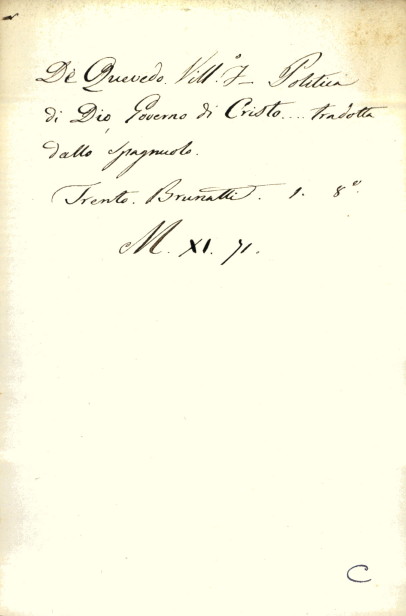 De Quevedo. Vill.º F– Politica
di Dio, Governo di Cristo.... tradotta
dallo Spagnuolo.
Trento. Brunatti. 1. 8º.
M. XI. 71.
C